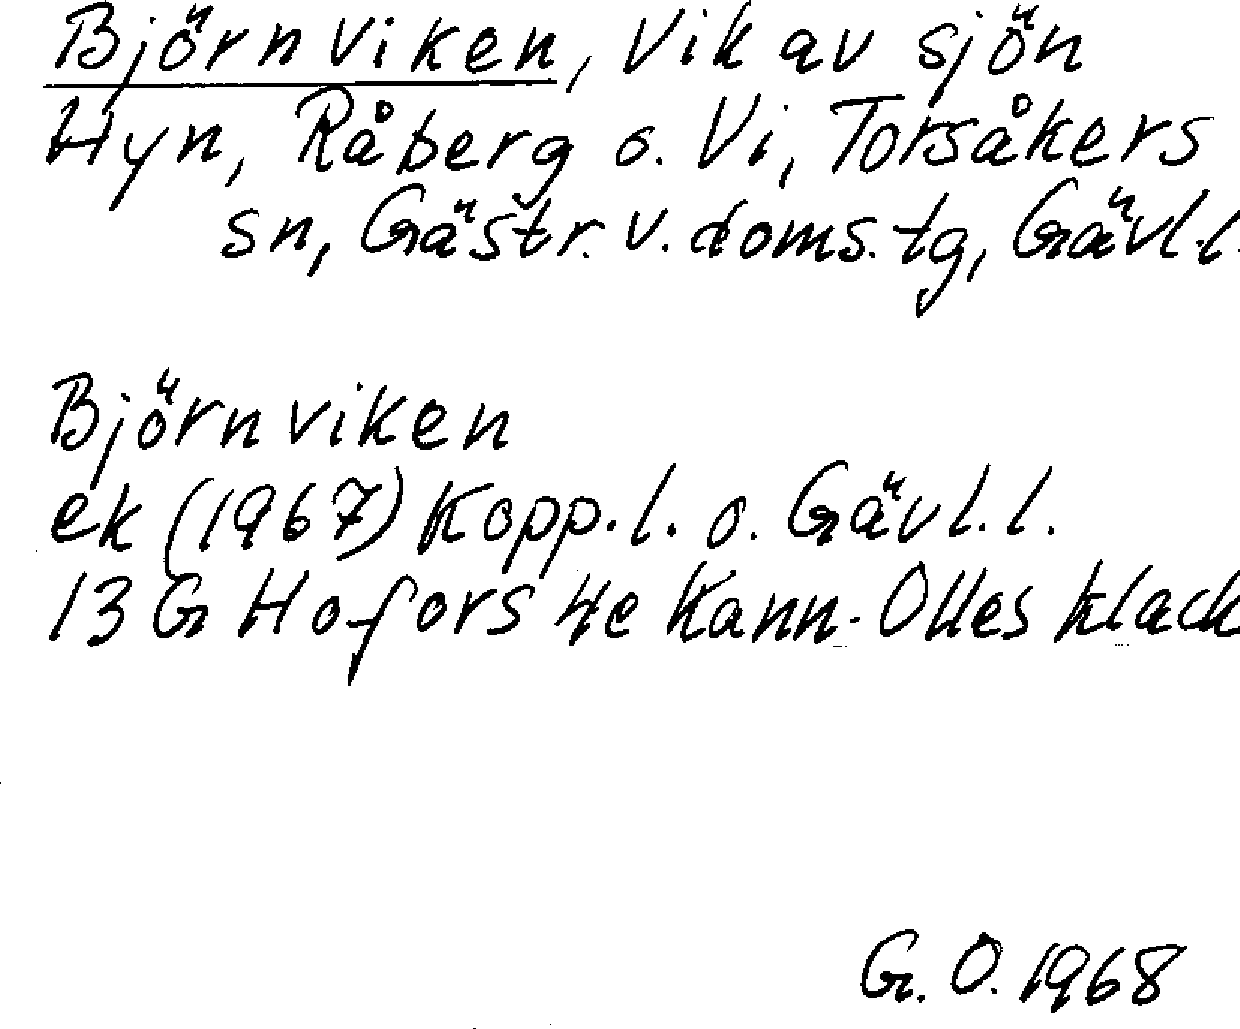 Björnviken, vik av sjön
Hyn, Råberg o. Vi, Torsåkers
sn, Gästr. v. doms. tg, Gävl. l.
Björnviken
ek (1967) Kopp. l. o. Gävl. l.
13 G Hofors 4e Kann-Olles klack
G. O. 1968